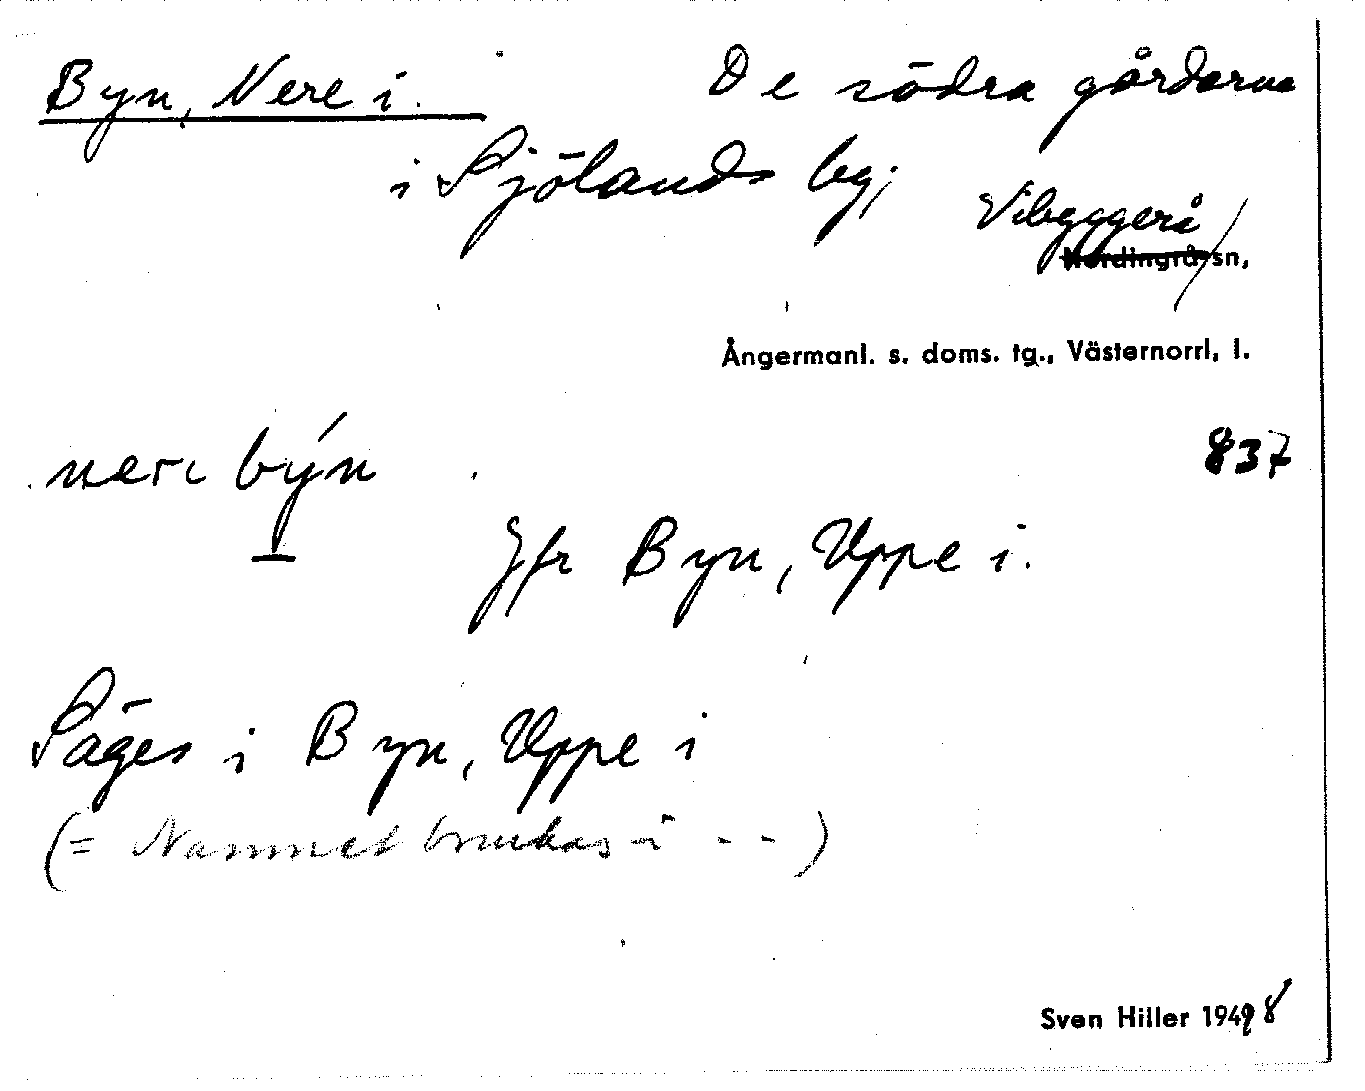 Byn, Nere i. De södra gårdarna
i Sjölands by;
Vibyggerå
Nordingrå sn,
Ångermanl. s. doms. tg., Västernorrl. l.
nere býn 837
Jfr Byn, Uppe i.
Säges i Byn, Uppe i
(= Namnet brukas i - - -)
Sven Hiller 1949 8